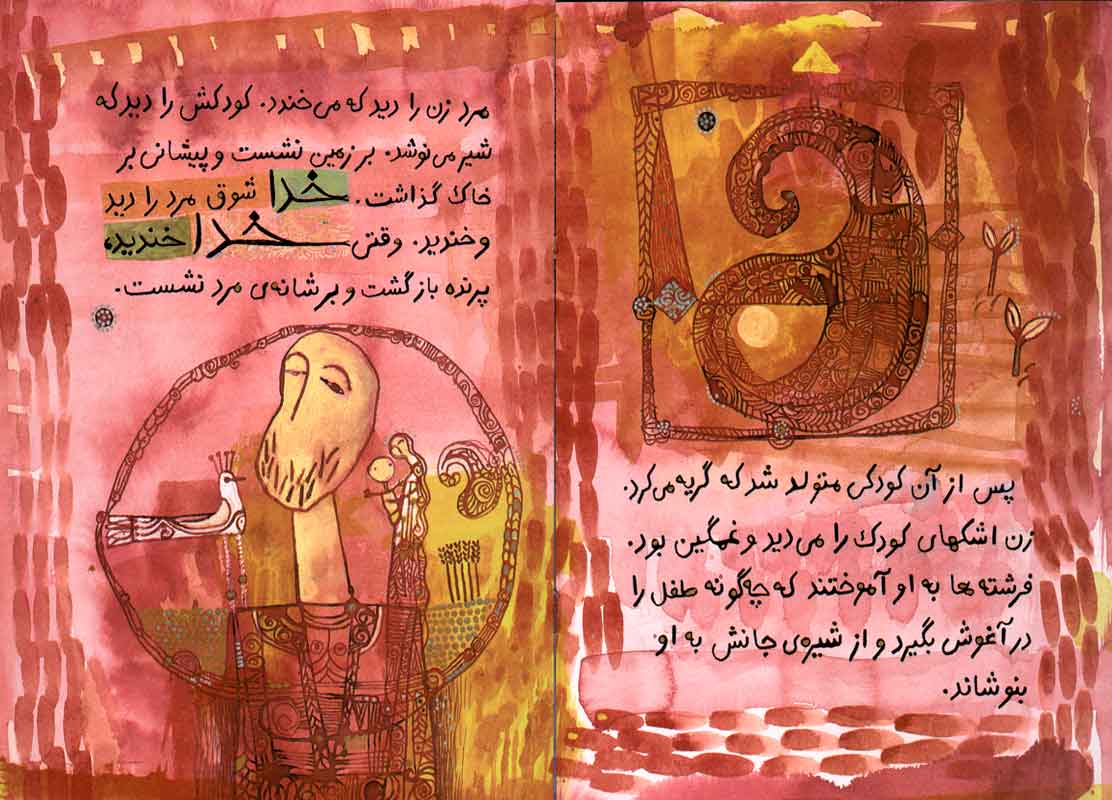 پس از آن کودکی متولد شد که گریه می‌کرد.
زن اشکهای کودک را می‌دید و غمگین بود.
فرشته ها به او آموختند که چه‌گونه طفل را
در آغوش بگیرد و از شیره‌ی جانش به او
بنوشاند.
مرد زن را دید که می‌خندد. کودکش را دید که
شیر می‌نوشد. بر زمین نشست و پیشانی بر
خاک گذاشت. خدا شوق مرد را دید
و خندید. وقتی خدا خندید،
پرنده بازگشت و بر شانه‌ی مرد نشست.